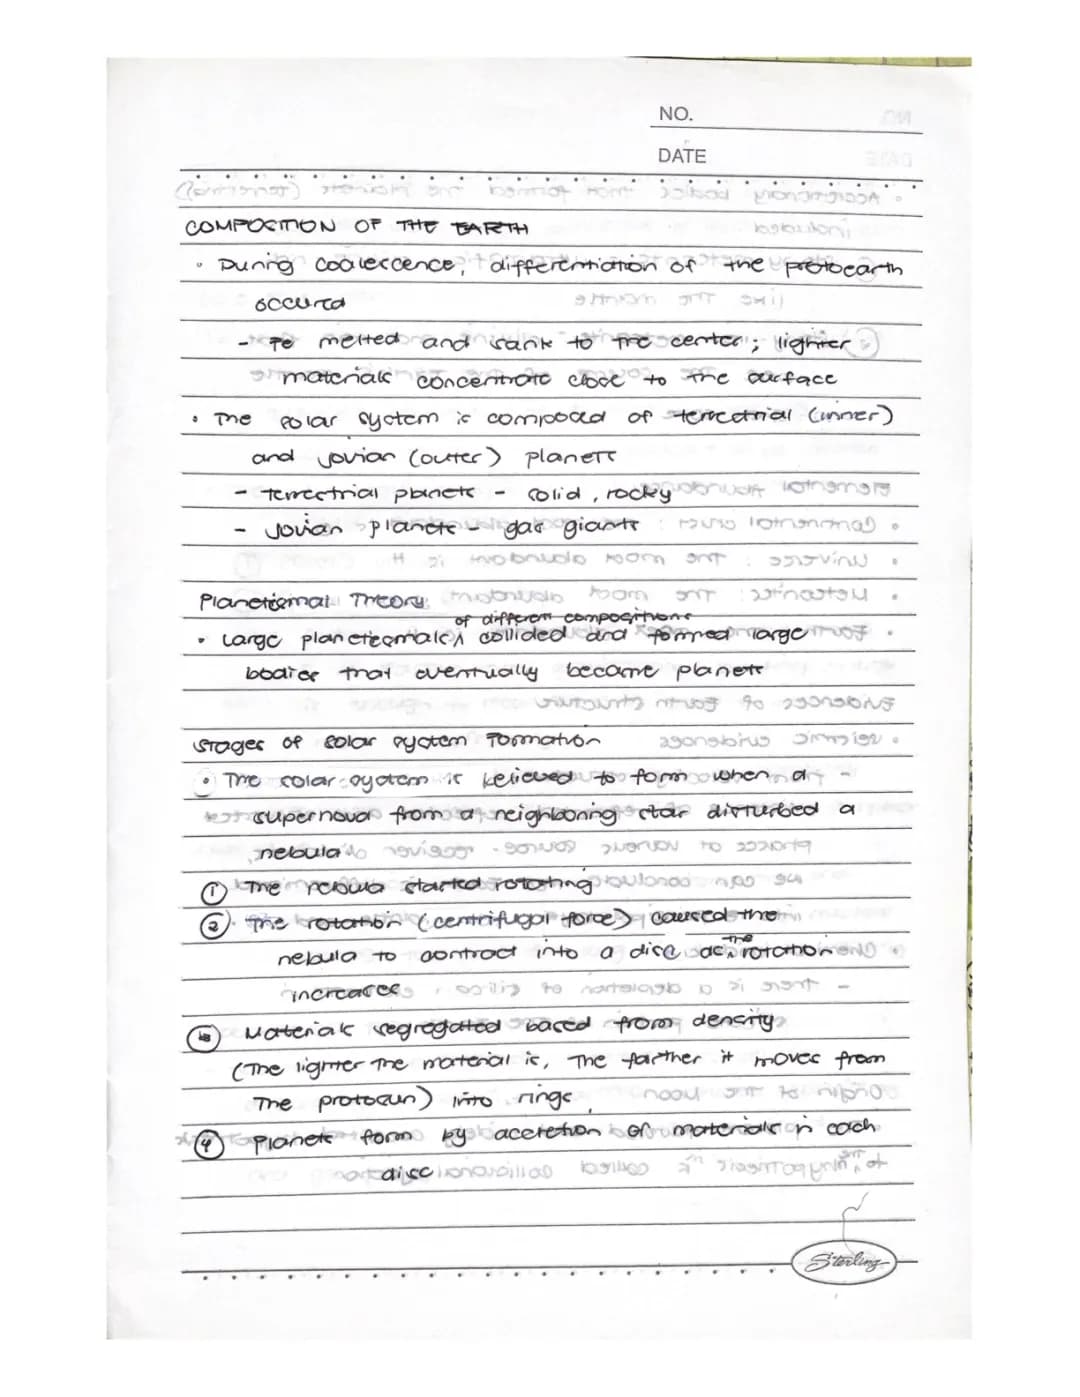 NO.
DATE
COMPOSITION OF THE EARTH
• During coalescence, differentiation of the protoearth
occured
- Fe melted and sank to the center; lighter
materials concentrate close to the surface
• The solar system is composed of terrestrial (inner)
and jovian (outter) planets
- terrestrial planets - solid, rocky
- Jovian planets - gas giants
Planetismal Theory:
of different compositions
• Large planetesmals ^ collided and formed large
bodies that eventually became planets
Stages of solar system Formation
• The solar system is believed to form when a
supernova from a neighboring star disturbed a
nebula
① The nebula started rotating
② The rotation (centrifugal force) caused the
nebula to contract into a disc as ^the rotation
increases
③ Materials segregated based from density
(The lighter the material is, the farther it moves from
the protosun) into rings
④ Planets form by accretion of materials in each
disc
Sterling